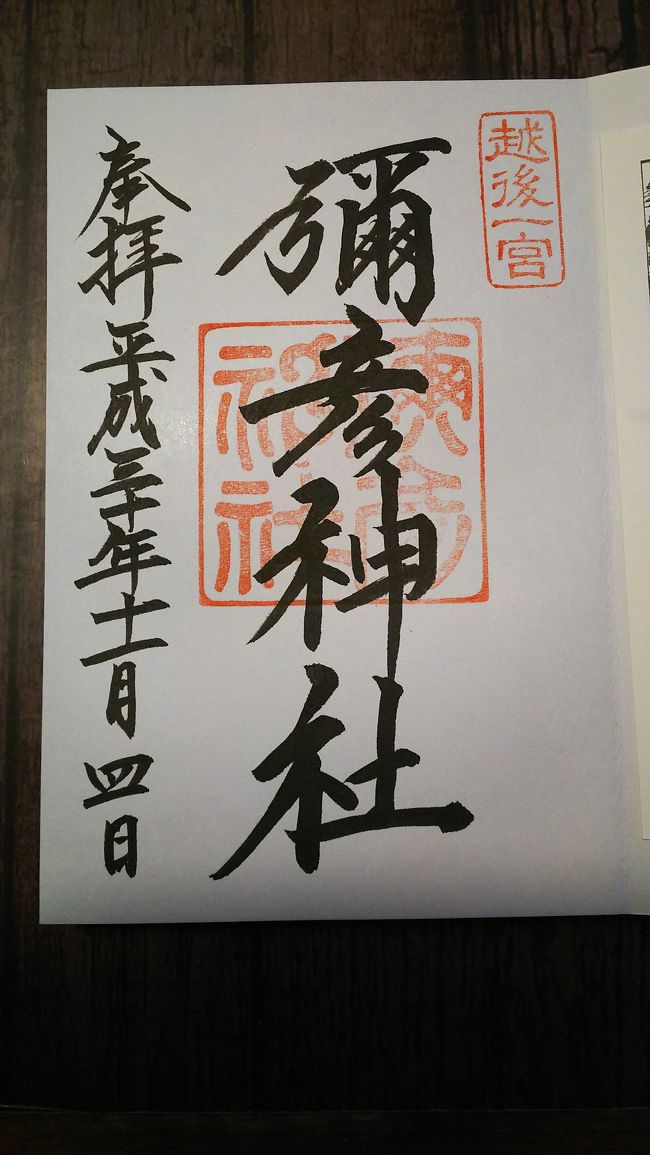 越後一宮
彌彦神社
奉拝 平成三十年十一月四日